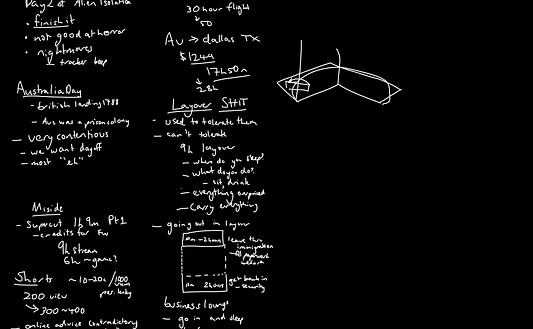 Day 2 of Alien Isolation
• finish it
• not good at horror
• nightmares
↳ tracker beep
Australia Day
- british landing 1788
- Aus was a prison colony
- very contentious
- we want day off
- most "eh"
Miside
- Supercut 1h 9m Pt1
- credits for Fw
9h stream
6h ~ game?
Shorts ~10-20c/1000 view
200 view
→ 300~400
- online advice contradictory
30 hour flight
↳ 50
Au → dallas TX
$1244
17h50m
↳ 28h
Layover SHIT
- used to tolerate them
- can't tolerate
9h layover
- when do you sleep?
- what do you do?
- sit, drink
- everything overpriced
- carry everything
- going out in layover
1h - 2hours
leave thru immigration
1h 2hours
get back in
- security
business lounge
- go in and sleep